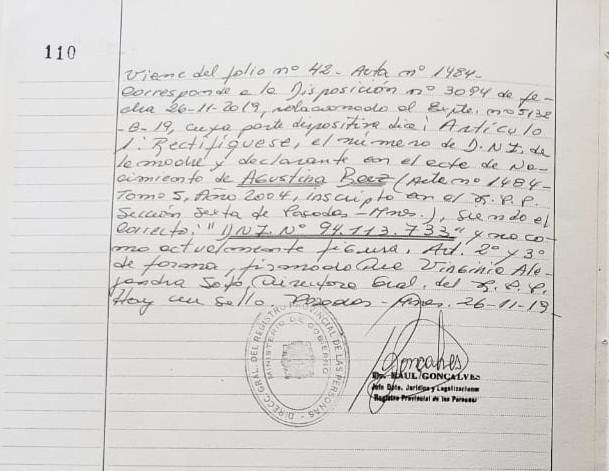 110
Viene del folio nº 42 - Acta nº 1484-
Corresponde a la Disposición nº 3094 de fe-
cha 26-11-2019, relacionado al Expte. nº 5132
-B-19, cuya parte dispositiva dice: Artículo
1: Rectifíquese, el número de D.N.I. de
la madre y declarante en el acta de Na-
cimiento de Agustina Baez (Acta nº 1484-
Tomo 5, Año 2004, inscripto en el R.P.P.
Sección Sexta de Posadas - Mnes.), siendo el
correcto: "DNI. Nº 94.113.733" y no co-
mo actualmente figura. Art. 2º y 3º
de forma, firmado Dra Virginia Ale-
jandra Soto, Directora Gral. del R.P.P.
Hay un sello. Posadas - Mnes. 26-11-19-
DIRECC. GRAL. DEL REGISTRO PROVINCIAL DE LAS PERSONAS
MINISTERIO DE GOBIERNO
Gonçalves
Dr. RAUL GONÇALVES
Jefe Dpto. Jurídico y Legalizaciones
Registro Provincial de las Personas